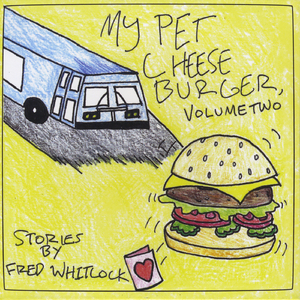 MY PET
CHEESE
BURGER,
VOLUME TWO
STORIES
BY
FRED WHITLOCK